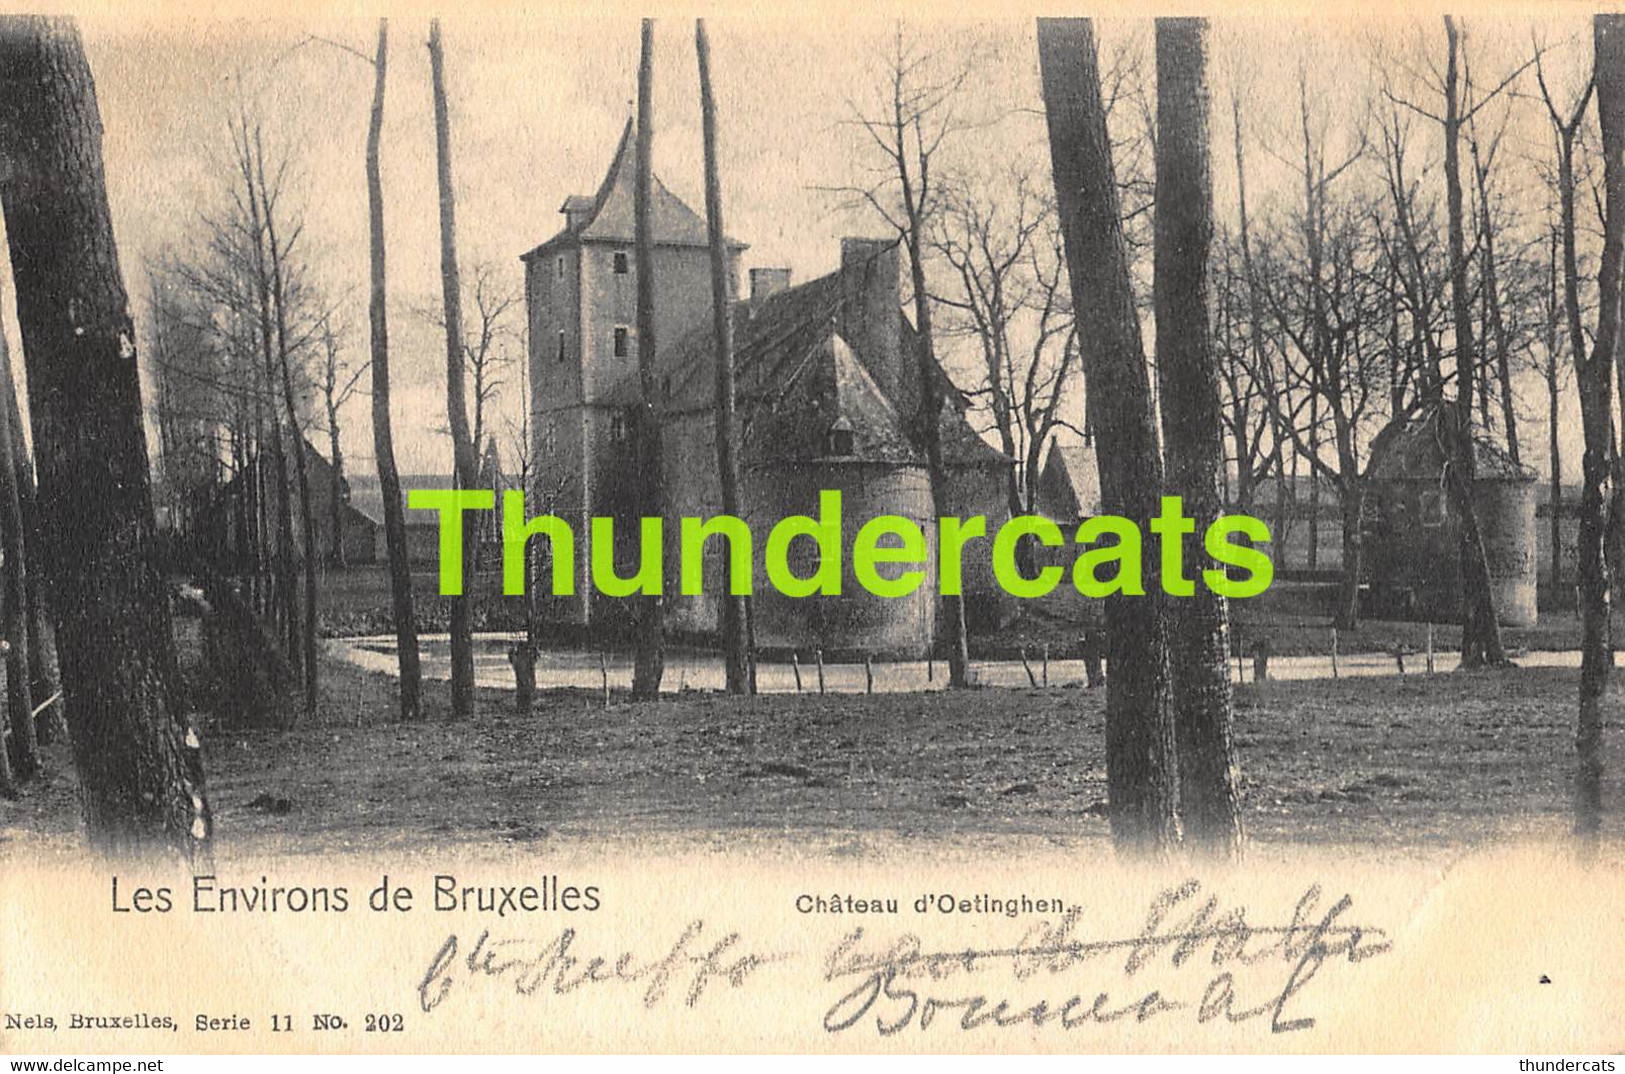 Thundercats
Les Environs de Bruxelles
Château d'Oetinghen.
Cte de Ruffo
Bonneval
Nels, Bruxelles, Serie 11 No. 202
www.delcampe.net
thundercats